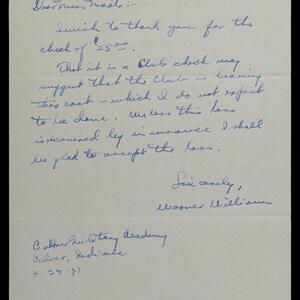 Dear Miss
I wish to thank you for the
check of $25.00.
That it is a Club check may
suggest that the Club is bearing
this cost - which I do not expect
to be done. Unless this loss
is recovered by insurance I shall
be glad to accept the loss.
Sincerely,
Warner Williams
Culver Military Academy
Culver, Indiana
4-23-41